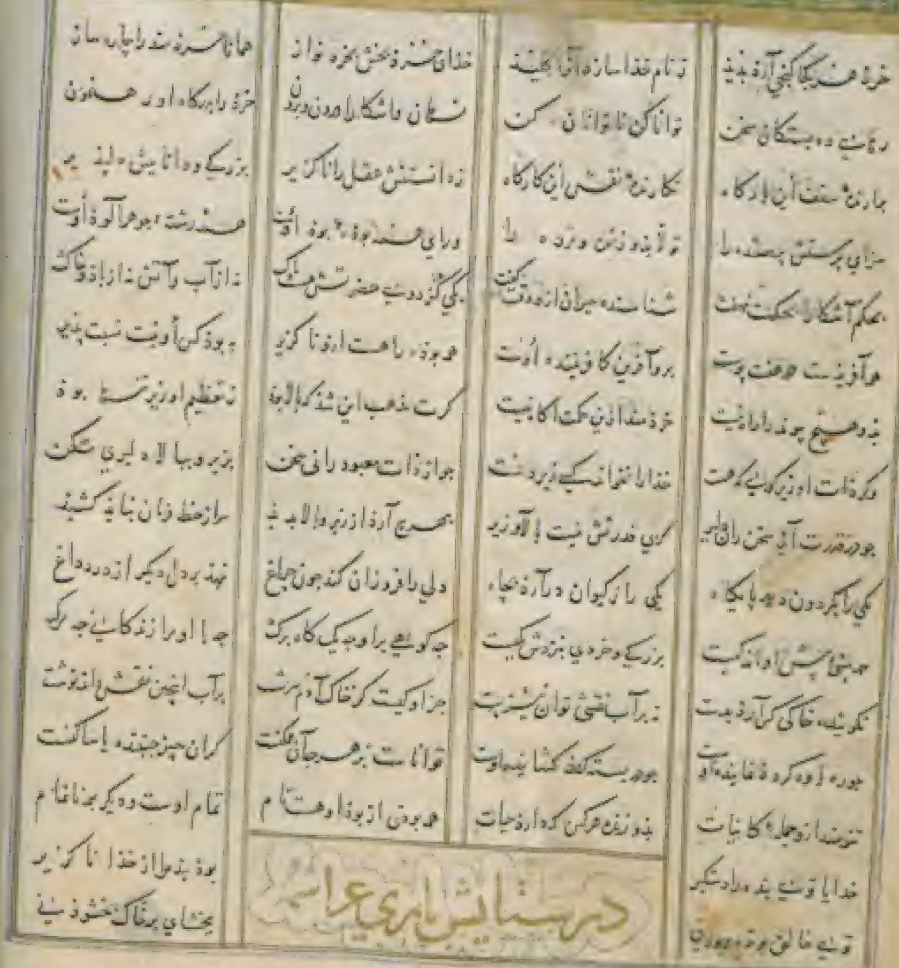 خرذ هر کجا گنجی آرذ بدیذ ز نام خذا سازد آنرا کلیذ خذای خرد بخش بخرد نواز همان ناخرذمند را چاره ساز
رهائی ده بستگان سخن توانا کن ناتوانان کن نهان و آشکارا درون و برون خرذ را بدرگاه او رهنمون
برارنده سقف این بارگاه نگارنده نقش این کارگاه ز دانستنش عقل را ناگزیر بزرگی و دانائیش دلپذیر
سزای پرستش پرستنده را تولا بذو زنده و مرده را ورای همه بوده بوذ اوست همه رشته جوهر آموذ اوست
بحکم آشکارا بحکمت نهفت شناسنده حیران ازو وقت گفت یکی کز دوئی حضرتش هست باک نه از آب و آتش نه از باذ و خاک
هر آفریذست در هفت بوست برو آفرین کافریننده اوست همه بوذه را هست ازو ناگزیر ببوذ کس او نیست نسبت بذیر
بذو هیچ بوینده را راه نیست خرذمند ازین حکمت آگاه نیست گرت مذهب این شذ که بالا بوذ ز تعظیم او زیر تنها بوذ
وگر ذات او زیر گوئی که هست خذا را نخواند کسی زیردست جو از ذات معبود رانی سخن بزیر و ببالا دلیری مکن
جو در قدرت آیذ سخن زان دلیر که بی قدرتش نیست بالا و زیر بهرچ آرذ از زیر و بالا بدیذ سر از خط فرمان نبایذ کشیذ
یکی را بگردون دهد بایگاه یکی را ز کیوان درآرذ بچاه دلی را فروزان کند جون جراغ نهذ بر دل دیگر از درد داغ
همه بیشی بیش او اندکیست بزرگی و خردی بنزدش یکیست جه کوهی بر او جه یک کاه برگ جه با او مرا زندگانی جه مرگ
نگوینده خاکی کس آرذ بدست نه بر آب نقشی توان نیز بست جز او کیست کز خاک آدم سرشت بر آب اینجنین نقش داند نوشت
جو ره یاوه گردذ نماینده اوست جو در بسته کشاینده اوست تواناست بر هرچ آن ممکنست گر آن چیز جنبنده یا ساکنست
تنومند ازو جمله کاینات بذو زنده هر کس که دارذ حیات همه بوذی از بوذ او هست نام تمام اوست و دیگر همه ناتمام
خدایا توئی بنده را دستگیر بوذ بنده را از خذا ناگزیر
توئی خالق بوذه و بوذنی ببخشای بر خاک بخشوذنی
در ستایش باری عز اسمه